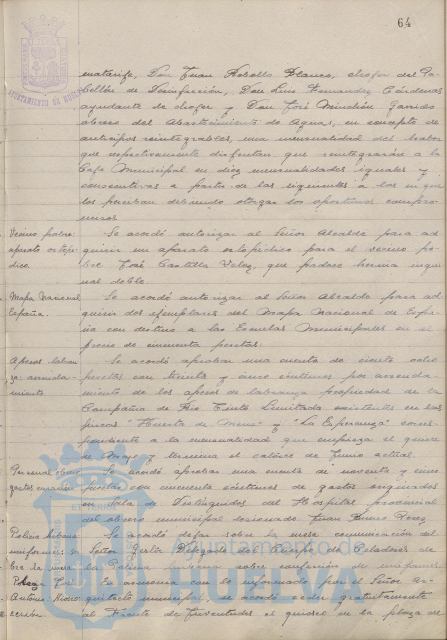 64
AYUNTAMIENTO DE HUELVA
matarife, Don Juan Rebollo Blanco, chofer del Pa-
bellón de Desinfección, Don Luis Fernandez Cárdenas
ayudante de chofer y Don José Minchón Garrido
obrero del Abastecimiento de Aguas, en concepto de
anticipos reintegrables, una mensualidad del haber
que respectivamente disfrutan, que reintegrarán a la
Caja Municipal en diez mensualidades iguales y
consecutivas a partir de las siguientes a los en que
los perciban debiendo otorgar los oportunos compro-
misos.
Vecino pobre
aparato ortopé-
dico.
Se acordó autorizar al Señor Alcalde para ad
quirir un aparato ortopédico para el vecino po-
bre José Castilla Velez, que padece hernia ingui
nal doble.
Mapa Nacional
España.
Se acordó autorizar al Señor Alcalde para ad
quirir dos ejemplares del Mapa Nacional de Espa-
ña con destino a las Escuelas Municipales en el
precio de cincuenta pesetas.
Aperos labran
za arrenda-
miento
Se acordó aprobar una cuenta de ciento ocho
pesetas con treinta y cinco céntimos por arrenda-
miento de los aperos de labranza propiedad de la
Compañia de Rio Tinto Limitada existentes en las
fincas "Huerta de Mena" y "La Esperanza" corres-
pondiente a la mensualidad que empieza el quince
de Mayo y termina el catorce de Junio actual.
Personal obrero
gastos curación
Se acordó aprobar una cuenta de noventa y cinco
pesetas con cincuenta céntimos de gastos originados
en Sala de Distinguidos del Hospital provincial
del obrero municipal lesionado Juan Perez
Policia urbana
uniformes; so-
bre la mesa
Se acordó dejar sobre la mesa comunicación del
Señor Gestor Delegado del Cuerpo de Celadores de
la Policia urbana sobre confección de uniformes
Plaza José
Antonio: Kiosco
cesión.
En armonia con lo informado por el Señor Ar-
quitecto municipal, se acordó ceder gratuitamente
al Frente de Juventudes el quiosco en la plaza de
Ayuntamiento de
HUELVA